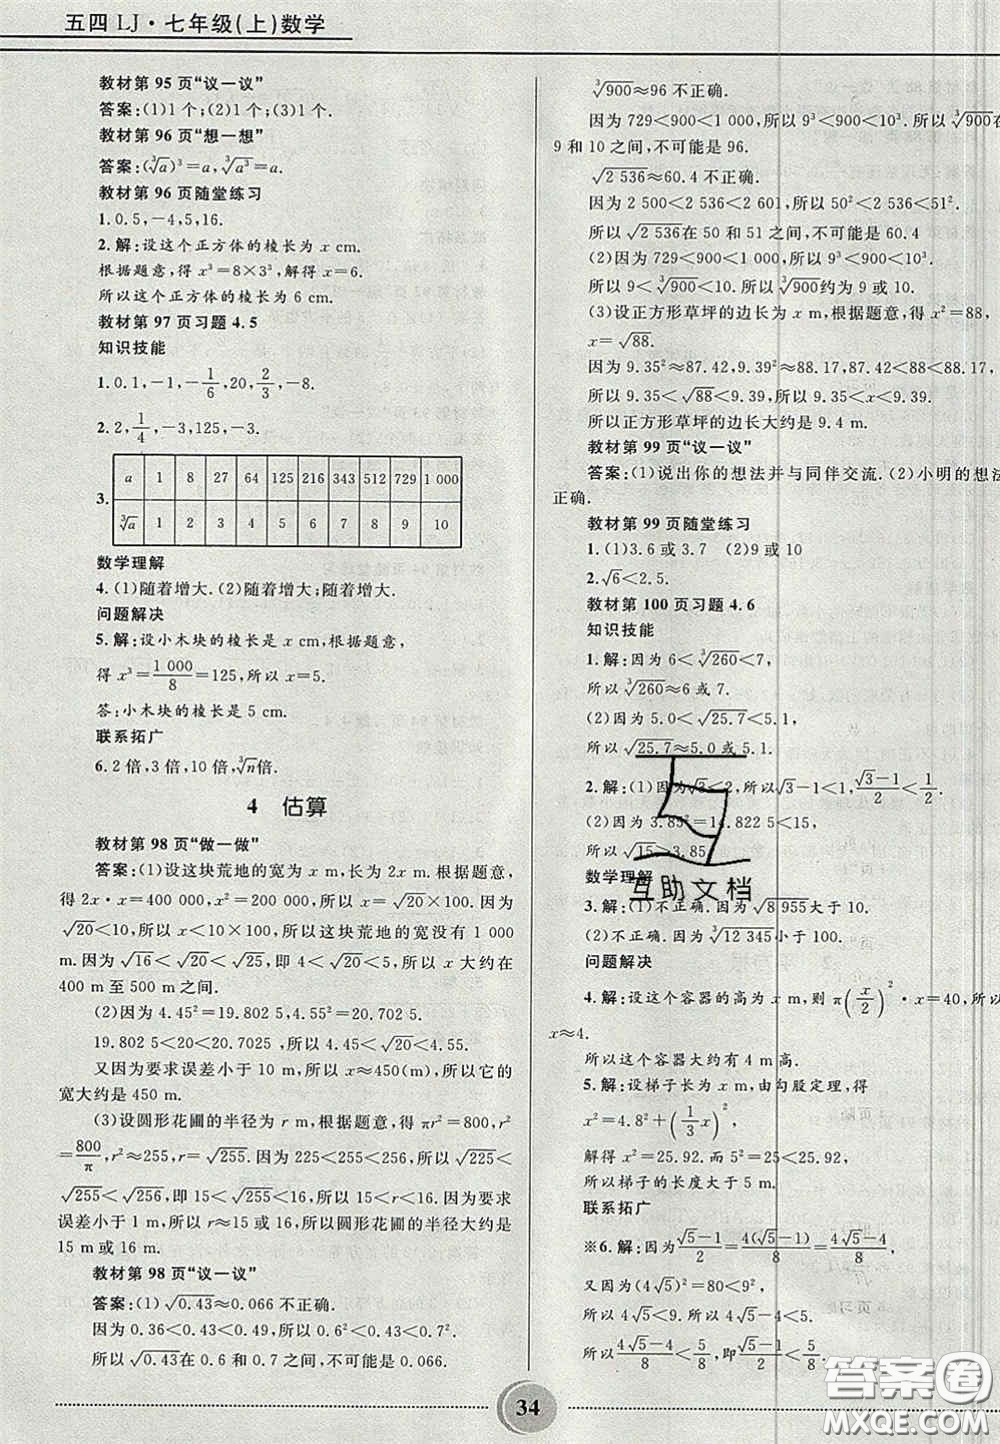 五四 LJ·七年级(上)数学
教材第 95 页“议一议”
答案:(1)1个;(2)1个;(3)1个.
教材第 96 页“想一想”
答案:(∛a)³=a,∛a³=a.
教材第 96 页随堂练习
1. 0.5,-4,5,16.
2. 解:设这个正方体的棱长为 x cm.
根据题意,得 x³=8×3³,解得 x=6.
所以这个正方体的棱长为 6 cm.
教材第 97 页习题 4.5
知识技能
1. 0.1,-1,-1/6,20,2/3,-8.
2. 2,1/4,-3,125,-3.
3.
a 1 8 27 64 125 216 343 512 729 1 000
∛a 1 2 3 4 5 6 7 8 9 10
数学理解
4. (1)随着增大.(2)随着增大;随着增大.
问题解决
5. 解:设小木块的棱长是 x cm,根据题意,
得 x³=1 000/8=125,所以 x=5.
答:小木块的棱长是 5 cm.
联系拓广
6. 2倍,3倍,10倍,∛n倍.
4 估算
教材第 98 页“做一做”
答案:(1)设这块荒地的宽为 x m,长为 2x m.根据题意,
得 2x·x=400 000,x²=200 000,所以 x=√20×100.因为
√20<10,所以 x<10×100,所以这块荒地的宽没有 1 000
m.因为√16<√20<√25,即 4<√20<5,所以 x 大约在
400 m 至 500 m 之间.
(2)因为 4.45²=19.802 5,4.55²=20.702 5.
19.802 5<20<20.7025,所以 4.45<√20<4.55.
又因为要求误差小于 10 m,所以 x≈450(m),所以它的
宽大约是 450 m.
(3)设圆形花圃的半径为 r m,根据题意,得 πr²=800,r²
=800/π,r²≈255,r=√255.因为 225<255<256,所以√225<
√255<√256,即 15<√255<16,所以 15<r<16.因为要求
误差小于 1 m,所以 r≈15 或 16,所以圆形花圃的半径大约是
15 m 或 16 m.
教材第 98 页“议一议”
答案:(1)√0.43≈0.066 不正确.
因为 0.36<0.43<0.49,所以 0.6²<0.43<0.7².
所以√0.43在 0.6 和 0.7 之间,不可能是 0.066.
∛900≈96 不正确.
因为 729<900<1 000,所以 9³<900<10³.所以∛900在
9 和 10 之间,不可能是 96.
√2 536≈60.4 不正确.
因为 2 500<2 536<2 601,所以 50²<2 536<51².
所以√2 536在 50 和 51 之间,不可能是 60.4
(2)因为 729<900<1 000,所以 9³<900<10³.
所以 9<∛900<10,所以∛900≈9 或 10.
(3)设正方形草坪的边长为 x m,根据题意,得 x²=88,
x=√88.
因为 9.35²≈87.42,9.39²≈88.17,87.42<88<88.17,
所以 9.35<√88<9.39,所以 9.35<x<9.39.
所以正方形草坪的边长大约是 9.4 m.
教材第 99 页“议一议”
答案:(1)说出你的想法并与同伴交流.(2)小明的想法
正确.
教材第 99 页随堂练习
1. (1)3.6 或 3.7 (2)9 或 10
2. √6<2.5.
教材第 100 页习题 4.6
知识技能
1. 解:因为 6<∛260<7,
所以∛260≈6 或 7.
(2)因为 5.0<√25.7<5.1,
所以√25.7≈5.0 或 5.1.
2. 解:(1)因为√3<2,所以√3-1<1,(√3-1)/2<1/2.
(2)因为 3.85²=14.822 5<15,
所以√15>3.85.
数学理解
3. 解:(1)不正确.因为√8 955大于 10.
(2)不正确.因为∛12 345小于 100.
问题解决
4. 解:设这个容器的高为 x m,则 π(x/2)²·x=40,所以
x≈4.
所以这个容器大约有 4 m 高.
5. 解:设梯子长为 x m,由勾股定理,得
x²=4.8²+(1/3x)².
解得 x²=25.92.而 5²=25<25.92.
所以梯子的长度大于 5 m.
联系拓广
※6. 解:因为(√5-1)/2=4(√5-1)/8=(4√5-4)/8,
又因为(4√5)²=80<9²,
所以 4√5<9.所以 4√5-4<5.
所以(4√5-4)/8<5/8,即(√5-1)/2<5/8.
互助文档
34
答案圈
MXQE.COM